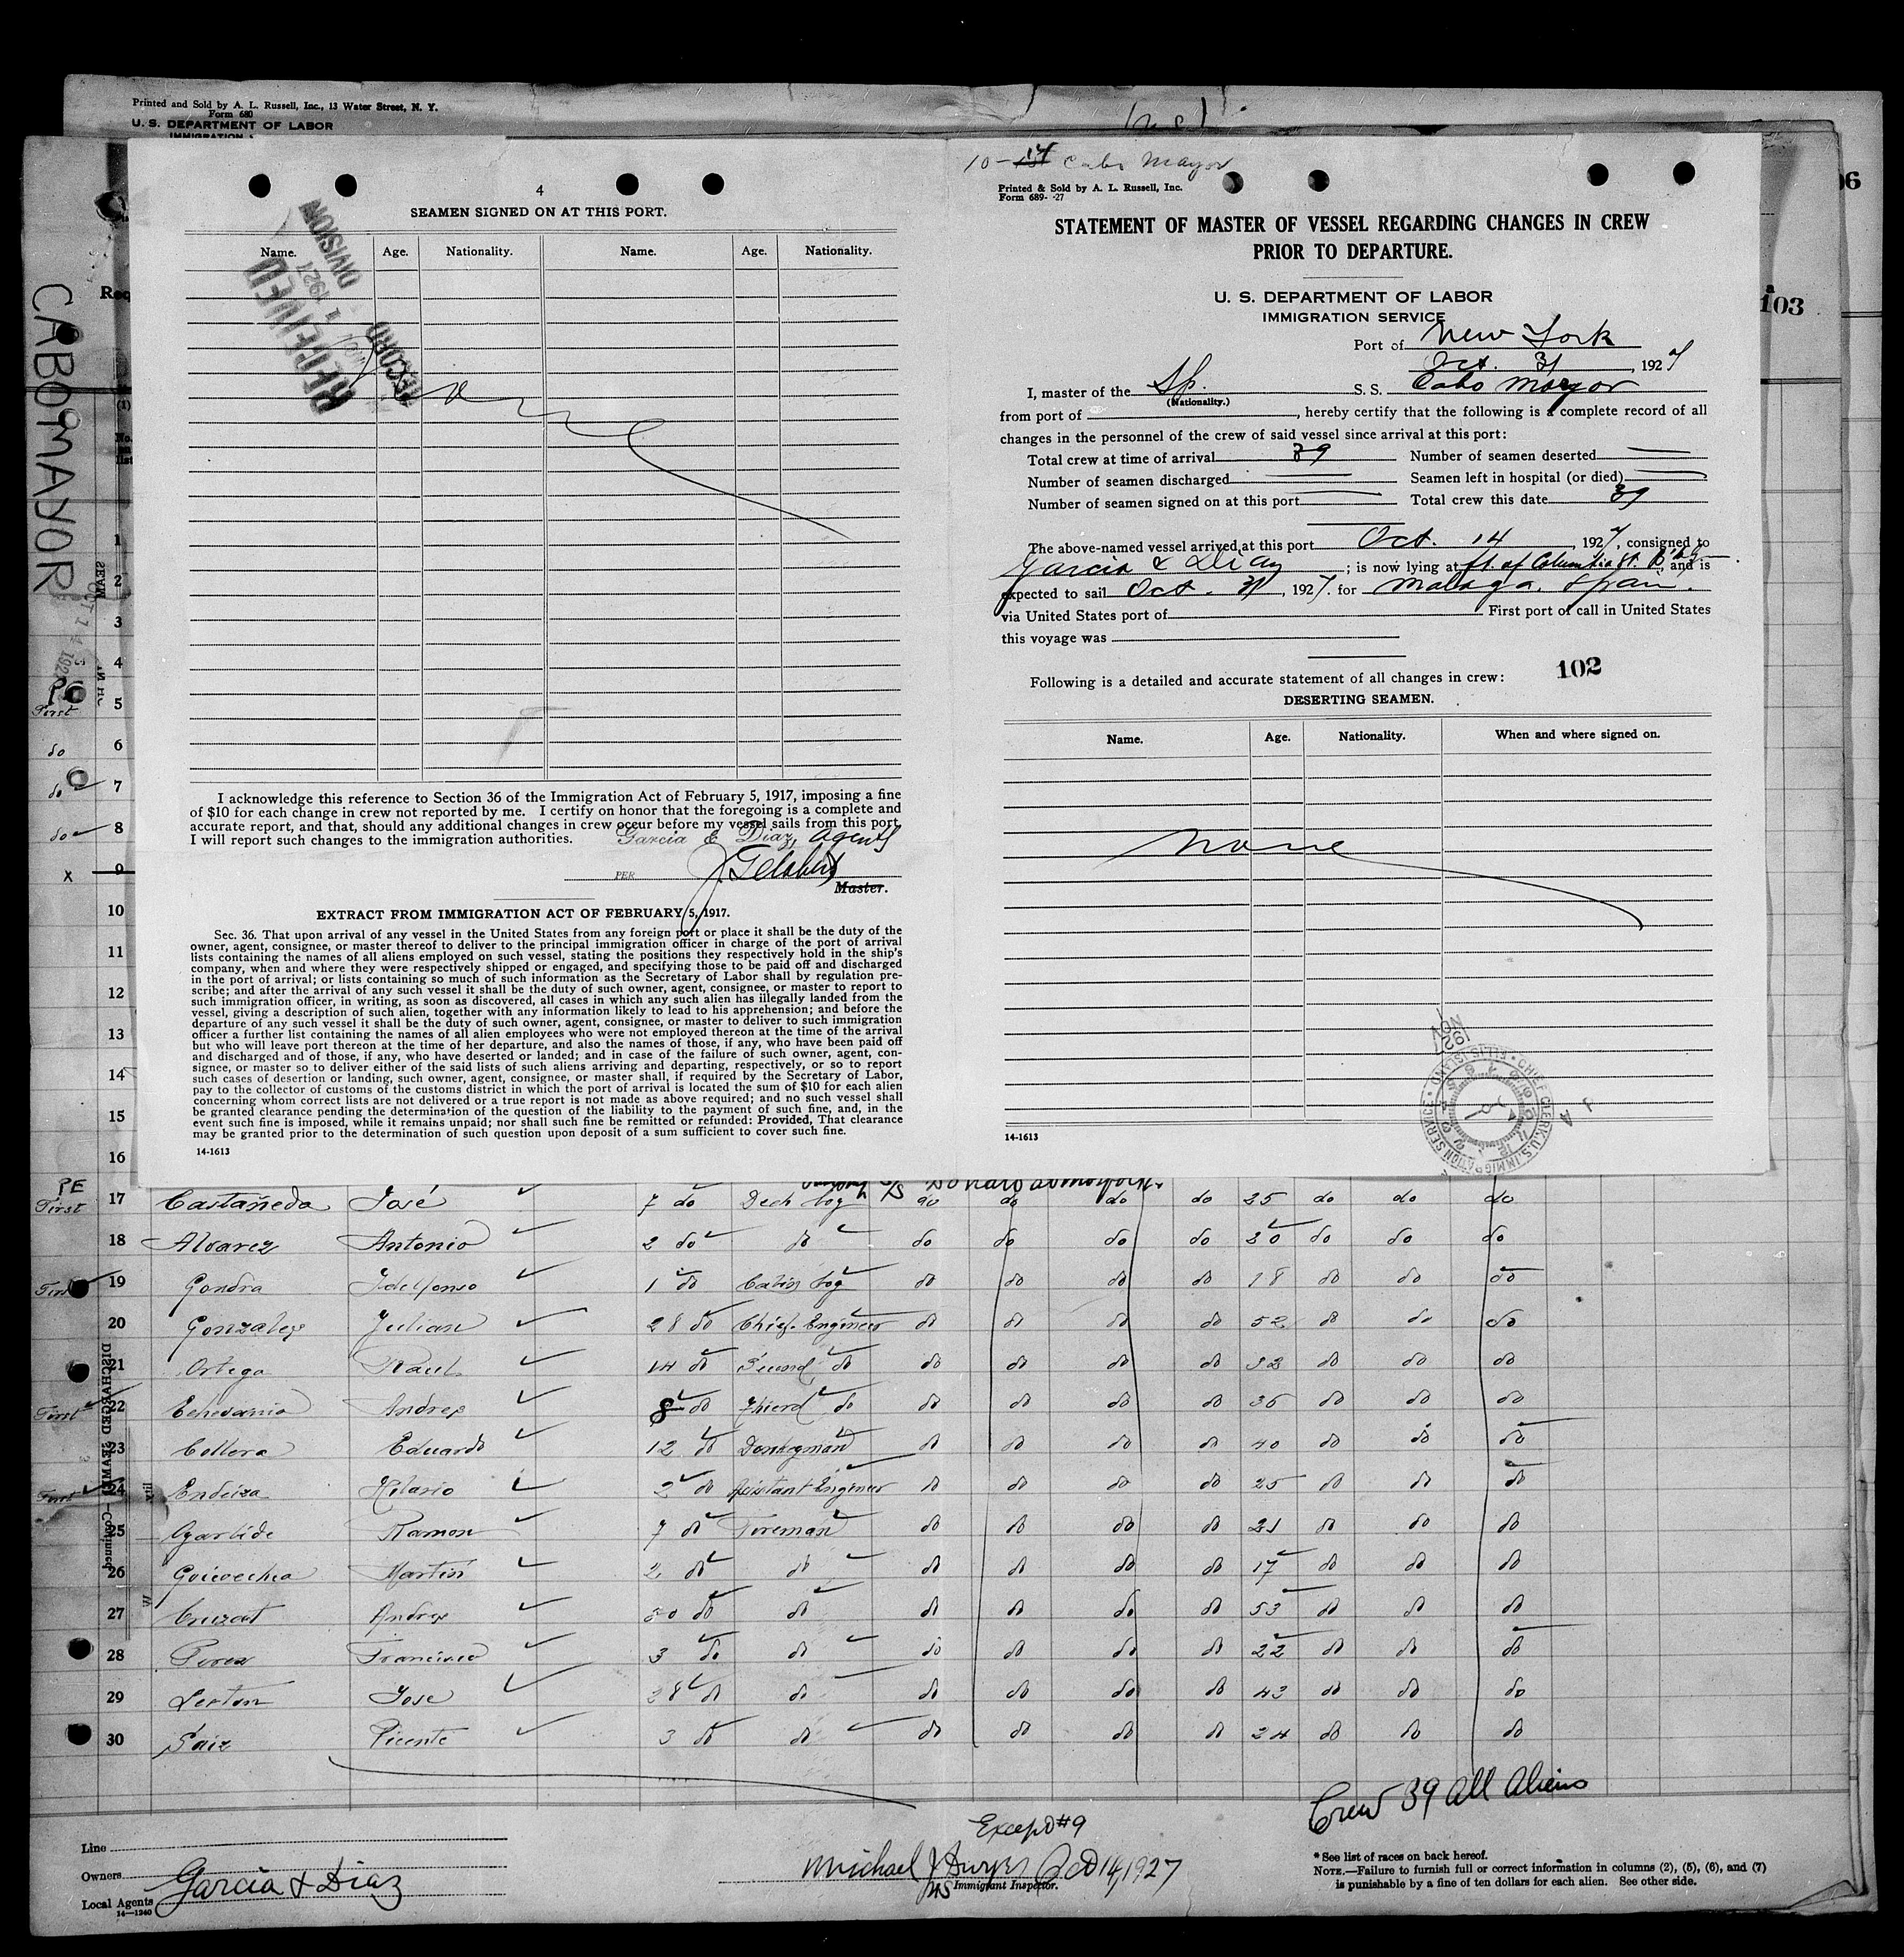 Printed and Sold by A. L. Russell, Inc., 13 Water Street, N. Y.
Form 680
U. S. DEPARTMENT OF LABOR
CABO MAYOR
103
4
SEAMEN SIGNED ON AT THIS PORT.
Name. Age. Nationality. Name. Age. Nationality.
RECEIVED
1927
DIVISION
RECORD
None
I acknowledge this reference to Section 36 of the Immigration Act of February 5, 1917, imposing a fine
of $10 for each change in crew not reported by me. I certify on honor that the foregoing is a complete and
accurate report, and that, should any additional changes in crew occur before my vessel sails from this port,
I will report such changes to the immigration authorities.
Garcia & Diaz, Agents
PER
Master.
EXTRACT FROM IMMIGRATION ACT OF FEBRUARY 5, 1917.
Sec. 36. That upon arrival of any vessel in the United States from any foreign port or place it shall be the duty of the
owner, agent, consignee, or master thereof to deliver to the principal immigration officer in charge of the port of arrival
lists containing the names of all aliens employed on such vessel, stating the positions they respectively hold in the ship's
company, when and where they were respectively shipped or engaged, and specifying those to be paid off and discharged
in the port of arrival; or lists containing so much of such information as the Secretary of Labor shall by regulation pre-
scribe; and after the arrival of any such vessel it shall be the duty of such owner, agent, consignee, or master to report to
such immigration officer, in writing, as soon as discovered, all cases in which any such alien has illegally landed from the
vessel, giving a description of such alien, together with any information likely to lead to his apprehension; and before the
departure of any such vessel it shall be the duty of such owner, agent, consignee, or master to deliver to such immigration
officer a further list containing the names of all alien employees who were not employed thereon at the time of the arrival
but who will leave port thereon at the time of her departure, and also the names of those, if any, who have been paid off
and discharged and of those, if any, who have deserted or landed; and in case of the failure of such owner, agent, con-
signee, or master so to deliver either of the said lists of such aliens arriving and departing, respectively, or so to report
such cases of desertion or landing, such owner, agent, consignee, or master shall, if required by the Secretary of Labor,
pay to the collector of customs of the customs district in which the port of arrival is located the sum of $10 for each alien
concerning whom correct lists are not delivered or a true report is not made as above required; and no such vessel shall
be granted clearance pending the determination of the question of the liability to the payment of such fine, and, in the
event such fine is imposed, while it remains unpaid; nor shall such fine be remitted or refunded: Provided, That clearance
may be granted prior to the determination of such question upon deposit of a sum sufficient to cover such fine.
14-1613
10-14 Cabo Mayor
Printed & Sold by A. L. Russell, Inc.
Form 689- -27
STATEMENT OF MASTER OF VESSEL REGARDING CHANGES IN CREW
PRIOR TO DEPARTURE.
U. S. DEPARTMENT OF LABOR
IMMIGRATION SERVICE
Port of New York
Oct. 31, 1927
I, master of the Sp. S. S. Cabo Mayor
(Nationality.)
from port of , hereby certify that the following is a complete record of all
changes in the personnel of the crew of said vessel since arrival at this port:
Total crew at time of arrival 39 Number of seamen deserted —
Number of seamen discharged — Seamen left in hospital (or died) —
Number of seamen signed on at this port — Total crew this date 39
The above-named vessel arrived at this port Oct. 14, 1927, consigned to
Garcia & Diaz; is now lying at ft. of Columbia St. B'klyn, and is
expected to sail Oct. 31, 1927. for Malaga, Spain.
via United States port of First port of call in United States
this voyage was
Following is a detailed and accurate statement of all changes in crew: 102
DESERTING SEAMEN.
Name. Age. Nationality. When and where signed on.
None
NOV 1927
CHIEF CLERK, U.S. IMMIGRATION SERVICE ELLIS ISLAND
14-1613
1
2
3
4
First 5
do 6
do 7
do 8
x 9
10
11
12
13
14
15
16
PE
First 17 Castañeda José 7 do Deck boy do do do do 25 do do do
18 Alvarez Antonio 2 do do do do do do 20 do do do
First 19 Gondra Idelfonso 1 do Cabin boy do do do do 18 do do do
20 Gonzalez Julian 28 do Chief Engineer do do do do 52 do do do
21 Ortega Raul 14 do Second do do do do do 32 do do do
First 22 Echevarria Andres 8 do Thierd do do do do do 36 do do do
23 Collera Eduardo 12 do Donkeyman do do do do 40 do do do
First 24 Endeiza Hilario 2 do Asistant Engineer do do do do 25 do do do
25 Ramon 7 do Fireman do do do do 21 do do do
26 Goicoechea Martin 2 do do do do do do 17 do do do
27 Cruzat Andres 20 do do do do do do 53 do do do
28 Perez Francisco 3 do do do do do do 22 do do do
29 Lerton Jose 28 do do do do do do 43 do do do
30 Saiz Vicente 3 do do do do do do 24 do do do
DISCHARGED SEAMEN—Continued
Crew 39 All Aliens
Except #9
Line
Owners
Local Agents Garcia & Diaz
14-1240
Michael J Dwyer Oct 14, 1927
Immigrant Inspector.
* See list of races on back hereof.
NOTE.—Failure to furnish full or correct information in columns (2), (5), (6), and (7)
is punishable by a fine of ten dollars for each alien. See other side.